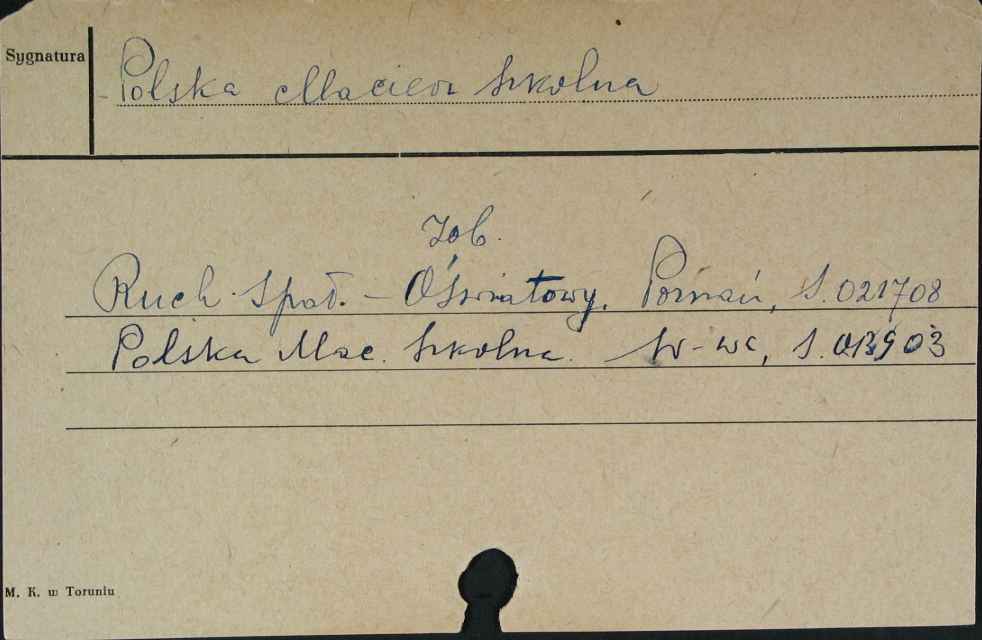 Sygnatura
Polska Macierz Szkolna
Zob.
Ruch Społ. - Oświatowy. Poznań, S. 021708
Polska Mac. Szkolna. W-wa, S. 013903
M. K. w Toruniu